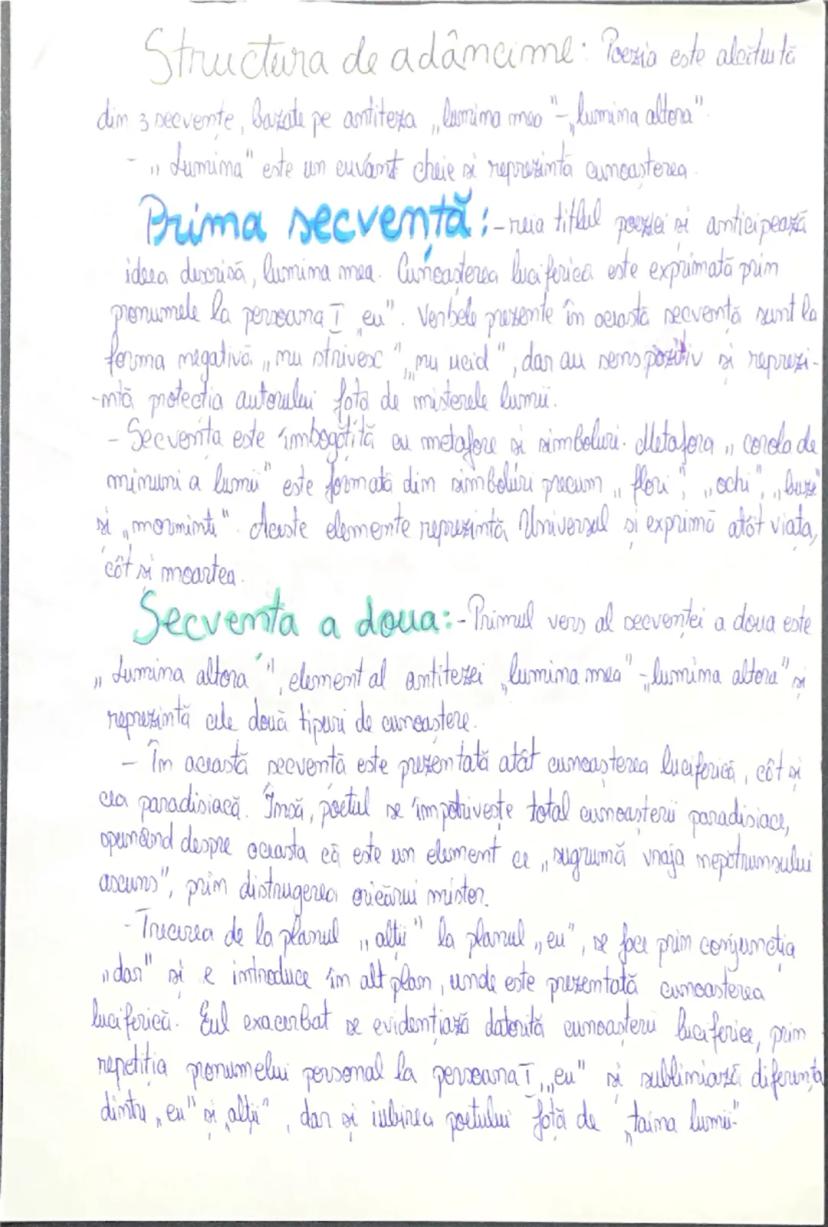 Structura de adâncime: Poezia este alcătuită
din 3 secvențe, bazate pe antiteza „lumina mea"-„lumina altora".
- „Lumina" este un cuvânt cheie si reprezintă cunoasterea.
Prima secvență:-reia titlul poeziei si anticipează
ideea descrisă, lumina mea. Cunoasterea luciferică este exprimată prin
pronumele la persoana I „eu". Verbele prezente în această secvență sunt la
forma negativă „nu strivesc" „nu ucid", dar au sens pozitiv si reprezi-
-ntă protectia autorului fată de misterele lumii.
- Secventa este îmbogătită cu metafore si simboluri. Metafora „corola de
minuni a lumii" este formată din simboluri precum „flori", „ochi", „buze"
si „morminte". Aceste elemente reprezintă Universul și exprimă atât viata,
cât si moartea.
Secventa a doua:-Primul vers al secvenței a doua este
„Lumina altora", element al antitezei „lumina mea"-„lumina altora" si
reprezintă cele două tipuri de cunoastere.
- În această secventă este prezentată atât cunoașterea luciferică, cât si
cea paradisiacă. Însă, poetul se împotrivește total cunoasterii paradisiace,
spunând despre aceasta că este un element ce „sugrumă vraja nepătrunsului
ascuns", prin distrugerea oricărui mister.
-Trecerea de la planul „alții" la planul „eu", se face prin conjuncția
„dar" si e introduce în alt plan, unde este prezentată cunoasterea
luciferică. Eul exacerbat se evidențiază datorită cunoasterii luciferice, prin
repetiția pronumelui personal la persoana I „eu" si subliniază diferența
dintre „eu" și „alții", dar si iubirea poetului față de „taina lumii"